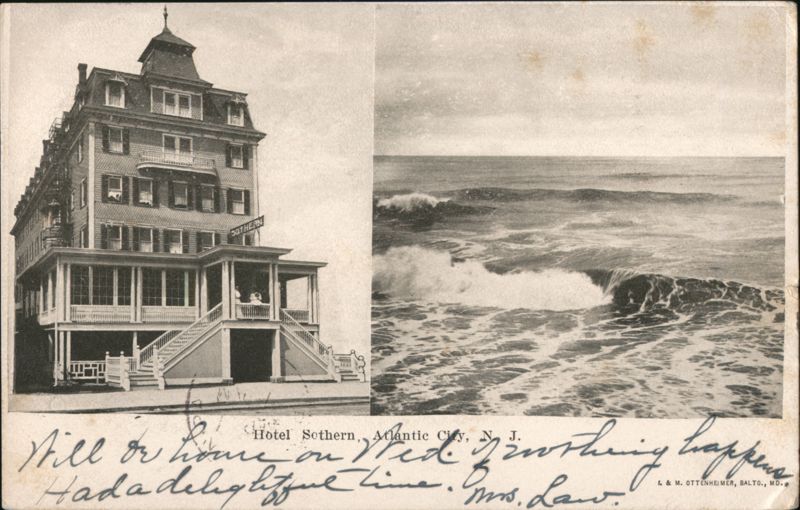 SOTHERN
Hotel Sothern, Atlantic City, N. J.
Will be home on Wed. if nothing happens
I. & M. OTTENHEIMER, BALTO., MD.
Had a delightful time.
Mrs. Law.